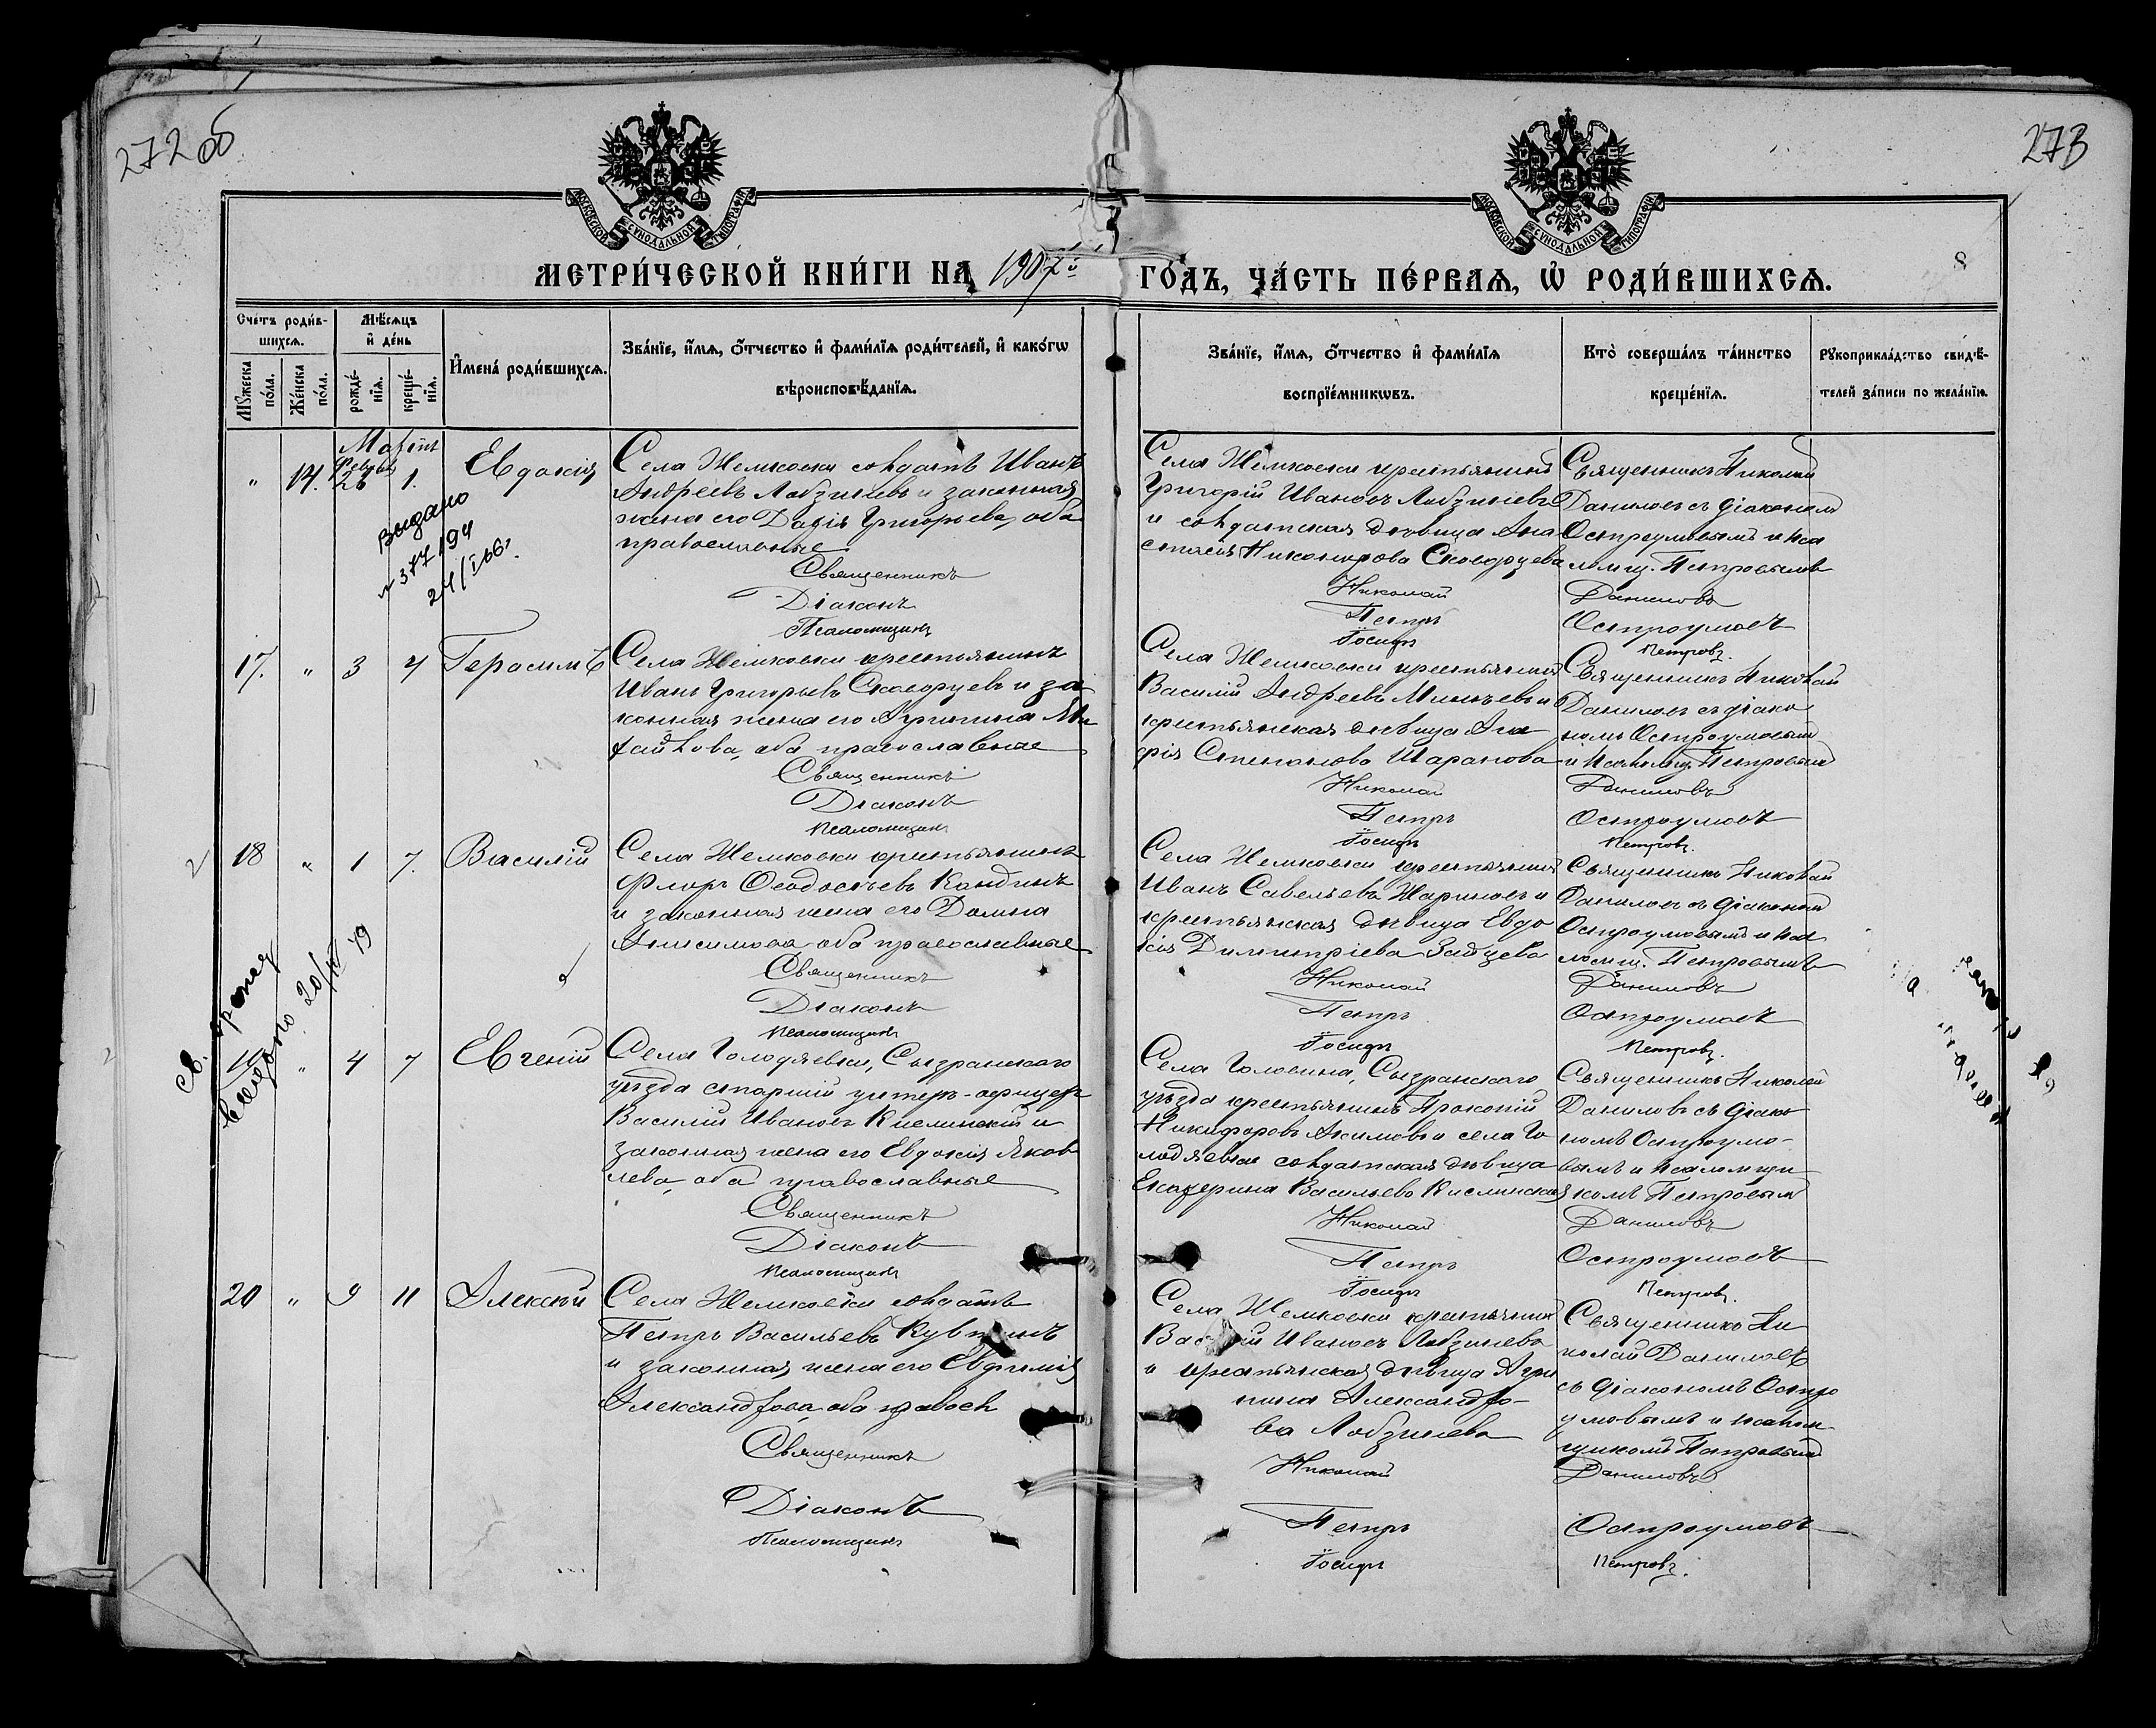 272 об
273
МОСКОВСКОЙ СѴНОДАЛЬНОЙ ТИПОГРАФІИ
МОСКОВСКОЙ СѴНОДАЛЬНОЙ ТИПОГРАФІИ
МЕТРИ́ЧЕСКОЙ КНИ́ГИ НА 1907й ГО́ДЪ, ЧА́СТЬ ПЕ́РВАЯ, Ѡ҆ РОДИ́ВШИХСЯ.
8
Сче́тъ роди́в-
шихся.
Мꙋ́жеска по́ла.
Же́нска по́ла.
Мѣ́сяцъ
и҆ де́нь
рожде́-
нїя.
креще́-
нїя.
И҆мена́ роди́вшихся.
Зва́нїе, и҆́мя, ѻ҆́тчество и҆ фами́лїя роди́телей, и҆ како́гѡ
вѣроисповѣ́данїя.
Зва́нїе, и҆́мя, ѻ҆́тчество и҆ фами́лїя
воспрїе́мникѡвъ.
Кто̀ соверша́лъ та́инство
креще́нїя.
Рꙋкоприкла́дство свидѣ́-
телей за́писи по жела́нїю.
Мартъ
Февраль
" 14. 26 1. Евдокія
Села Жемковки солдатъ Иванъ
Андреевъ Лобзиневъ и законная
жена его Дарія Григорьева, оба
православные
Священникъ
Діаконъ
Псаломщикъ
Села Жемковки крестьянинъ
Григорій Ивановъ Лобзиневъ
и солдатская дѣвица Ана
стасія Никонорова Скворцева
Николай
Петръ
Іосифъ
Священникъ Николай
Даниловъ съ діакономъ
Остроумовымъ и пса
ломщ. Петровымъ
Даниловъ
Остроумовъ
Петровъ.
Выдано
№ 377194
24/I 66г.
17. " 3 4 Герасимъ
Села Жемковки крестьянинъ
Иванъ Григорьевъ Скворцевъ и за
конная жена его Агрипина Ми
хайлова, оба православные
Священникъ
Діаконъ
Псаломщикъ
Села Жемковки крестьянинъ
Василій Андреевъ и
крестьянская дѣвица Ага
фія Степанова Шарапова
Николай
Петръ
Іосифъ
Священникъ Николай
Даниловъ съ діако
номъ Остроумовымъ
и псаломщ. Петровымъ
Даниловъ
Остроумовъ
Петровъ.
18 " 1 7. Василій
Села Жемковки крестьянинъ
Флоръ Ѳеодосьевъ Кандинъ
и законная жена его Домна
Анисимова оба православные
Священникъ
Діаконъ
Псаломщикъ
Села Жемковки крестьянинъ
Иванъ Савельевъ Жариновъ и
крестьянская дѣвица Евдо
кія Димитріева Зайцева
Николай
Петръ
Іосифъ
Священникъ Николай
Даниловъ съ діакономъ
Остроумовымъ и пса
ломщ. Петровымъ
Даниловъ
Остроумовъ
Петровъ.
выдано 20/IV 49
19 " 4 7 Евгеній
Села Голодяевки, Сызранскаго
уѣзда старшій унтеръ-офицеръ
Василій Ивановъ Кислинскій и
законная жена его Евдокія Яков
лева, оба православные
Священникъ
Діаконъ
Псаломщикъ
Села Головина, Сызранскаго
уѣзда крестьянинъ Прокопій
Никифоровъ Акимовъ и села Го
лодяевки солдатская дѣвица
Екатерина Васильева Кислинская
Николай
Петръ
Іосифъ
Священникъ Николай
Даниловъ съ діако
номъ Остроумо-
вымъ и псаломщи
комъ Петровымъ
Даниловъ
Остроумовъ
Петровъ.
20 " 9 11 Алексѣй
Села Жемковки солдатъ
Петръ Васильевъ
и законная жена его Евфимія
Александрова, оба правосл
Священникъ
Діаконъ
Псаломщикъ
Села Жемковки крестьянинъ
Василій Ивановъ Лобзиневъ
и крестьянская дѣвица Агри
пина Александро-
ва Лобзинева
Николай
Петръ
Іосифъ
Священникъ Ни
колай Даниловъ
съ діакономъ Остро
умовымъ и псалом
щикомъ Петровымъ
Даниловъ
Остроумовъ
Петровъ.